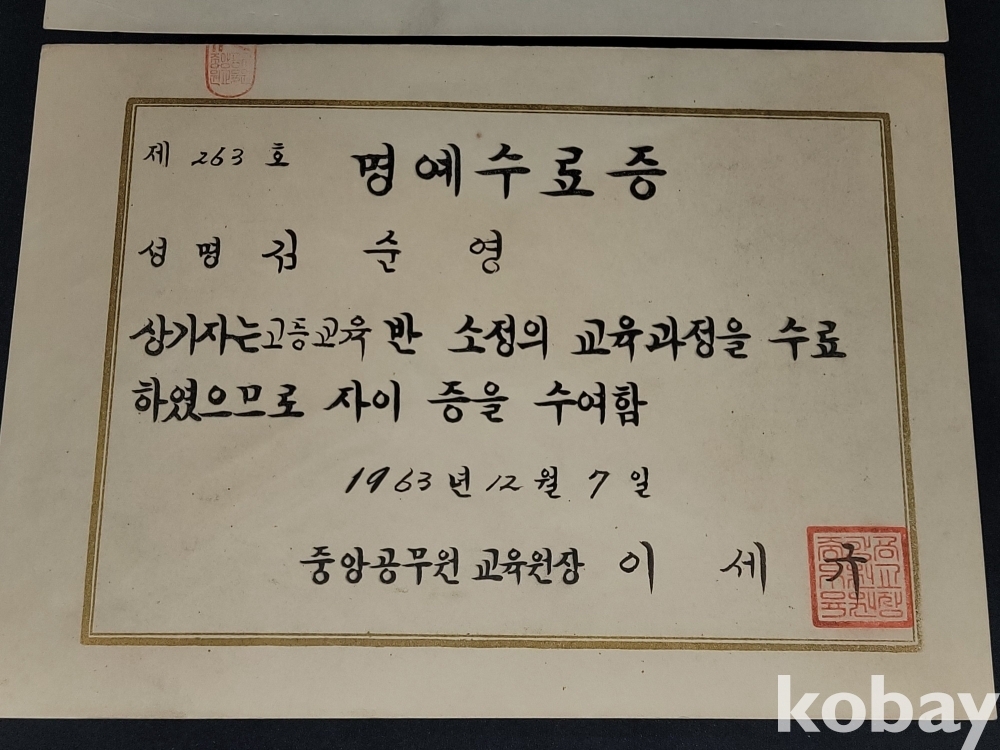 제 263 호 명예수료증
성명 김 순 영
상기자는 고등교육 반 소정의 교육과정을 수료
하였으므로 자이 증을 수여함
1963년 12월 7일
중앙공무원 교육원장 이 세 규
kobay